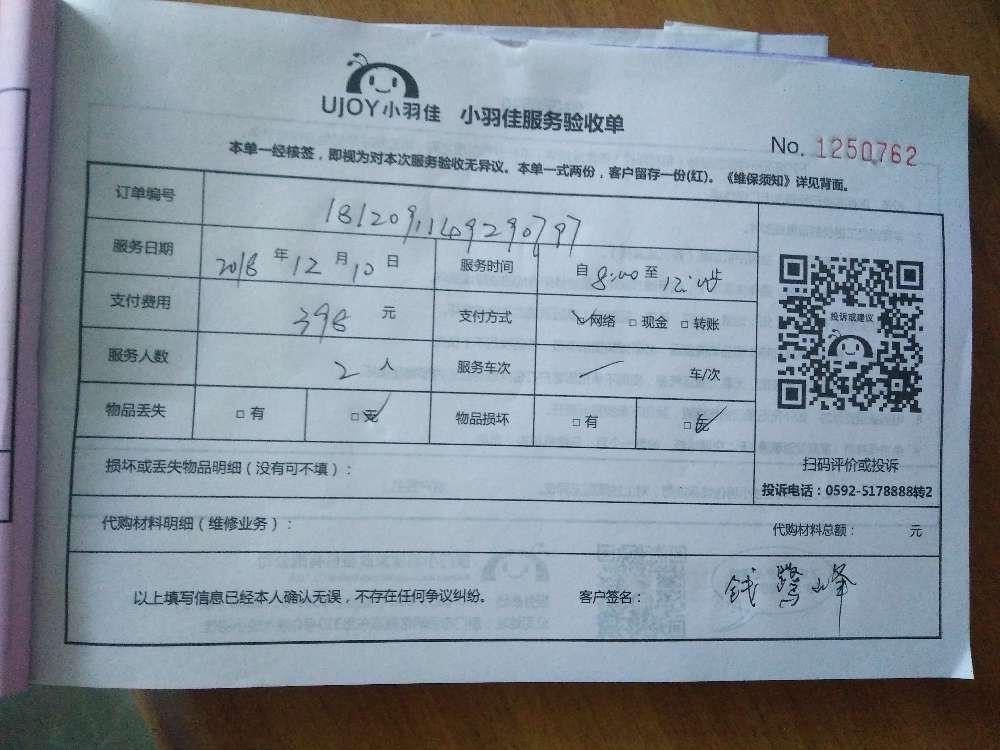 UJOY小羽佳 小羽佳服务验收单
No. 1250762
本单一经核签，即视为对本次服务验收无异议。本单一式两份，客户留存一份(红)。《维保须知》详见背面。
订单编号 1812091149290797
服务日期 2018 年 12 月 10 日 服务时间 自 8:00 至 12:00
支付费用 398 元 支付方式 网络 □ 现金 □ 转账
投诉或建议
服务人数 2 人 服务车次 车/次
物品丢失 □ 有 □ 无 物品损坏 □ 有 □ 无
扫码评价或投诉
损坏或丢失物品明细（没有可不填）：
投诉电话：0592-5178888转2
代购材料明细（维修业务）： 代购材料总额： 元
以上填写信息已经本人确认无误，不存在任何争议纠纷。 客户签名： 钱鹭峰